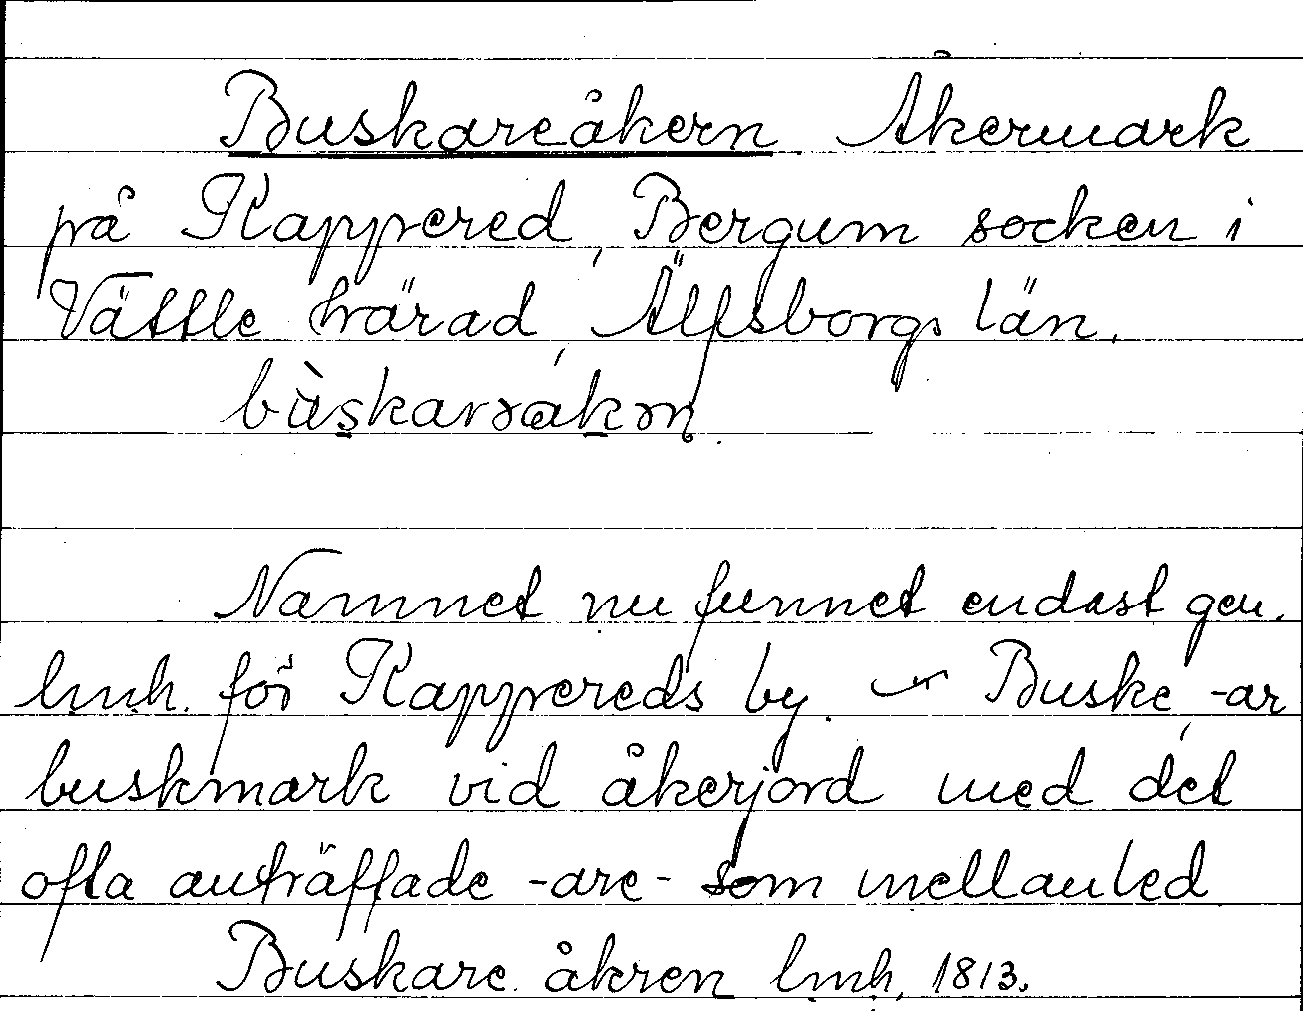 Buskareåkern Åkermark
på Kappered, Bergum socken i
Vättle härad, Älfsborgs län.
Namnet nu funnet endast gen.
lmh. för Kappereds by. Buske, -ar
buskmark vid åkerjord med det
ofta anträffade -are- som mellanled
Buskare åkren lmh, 1813.